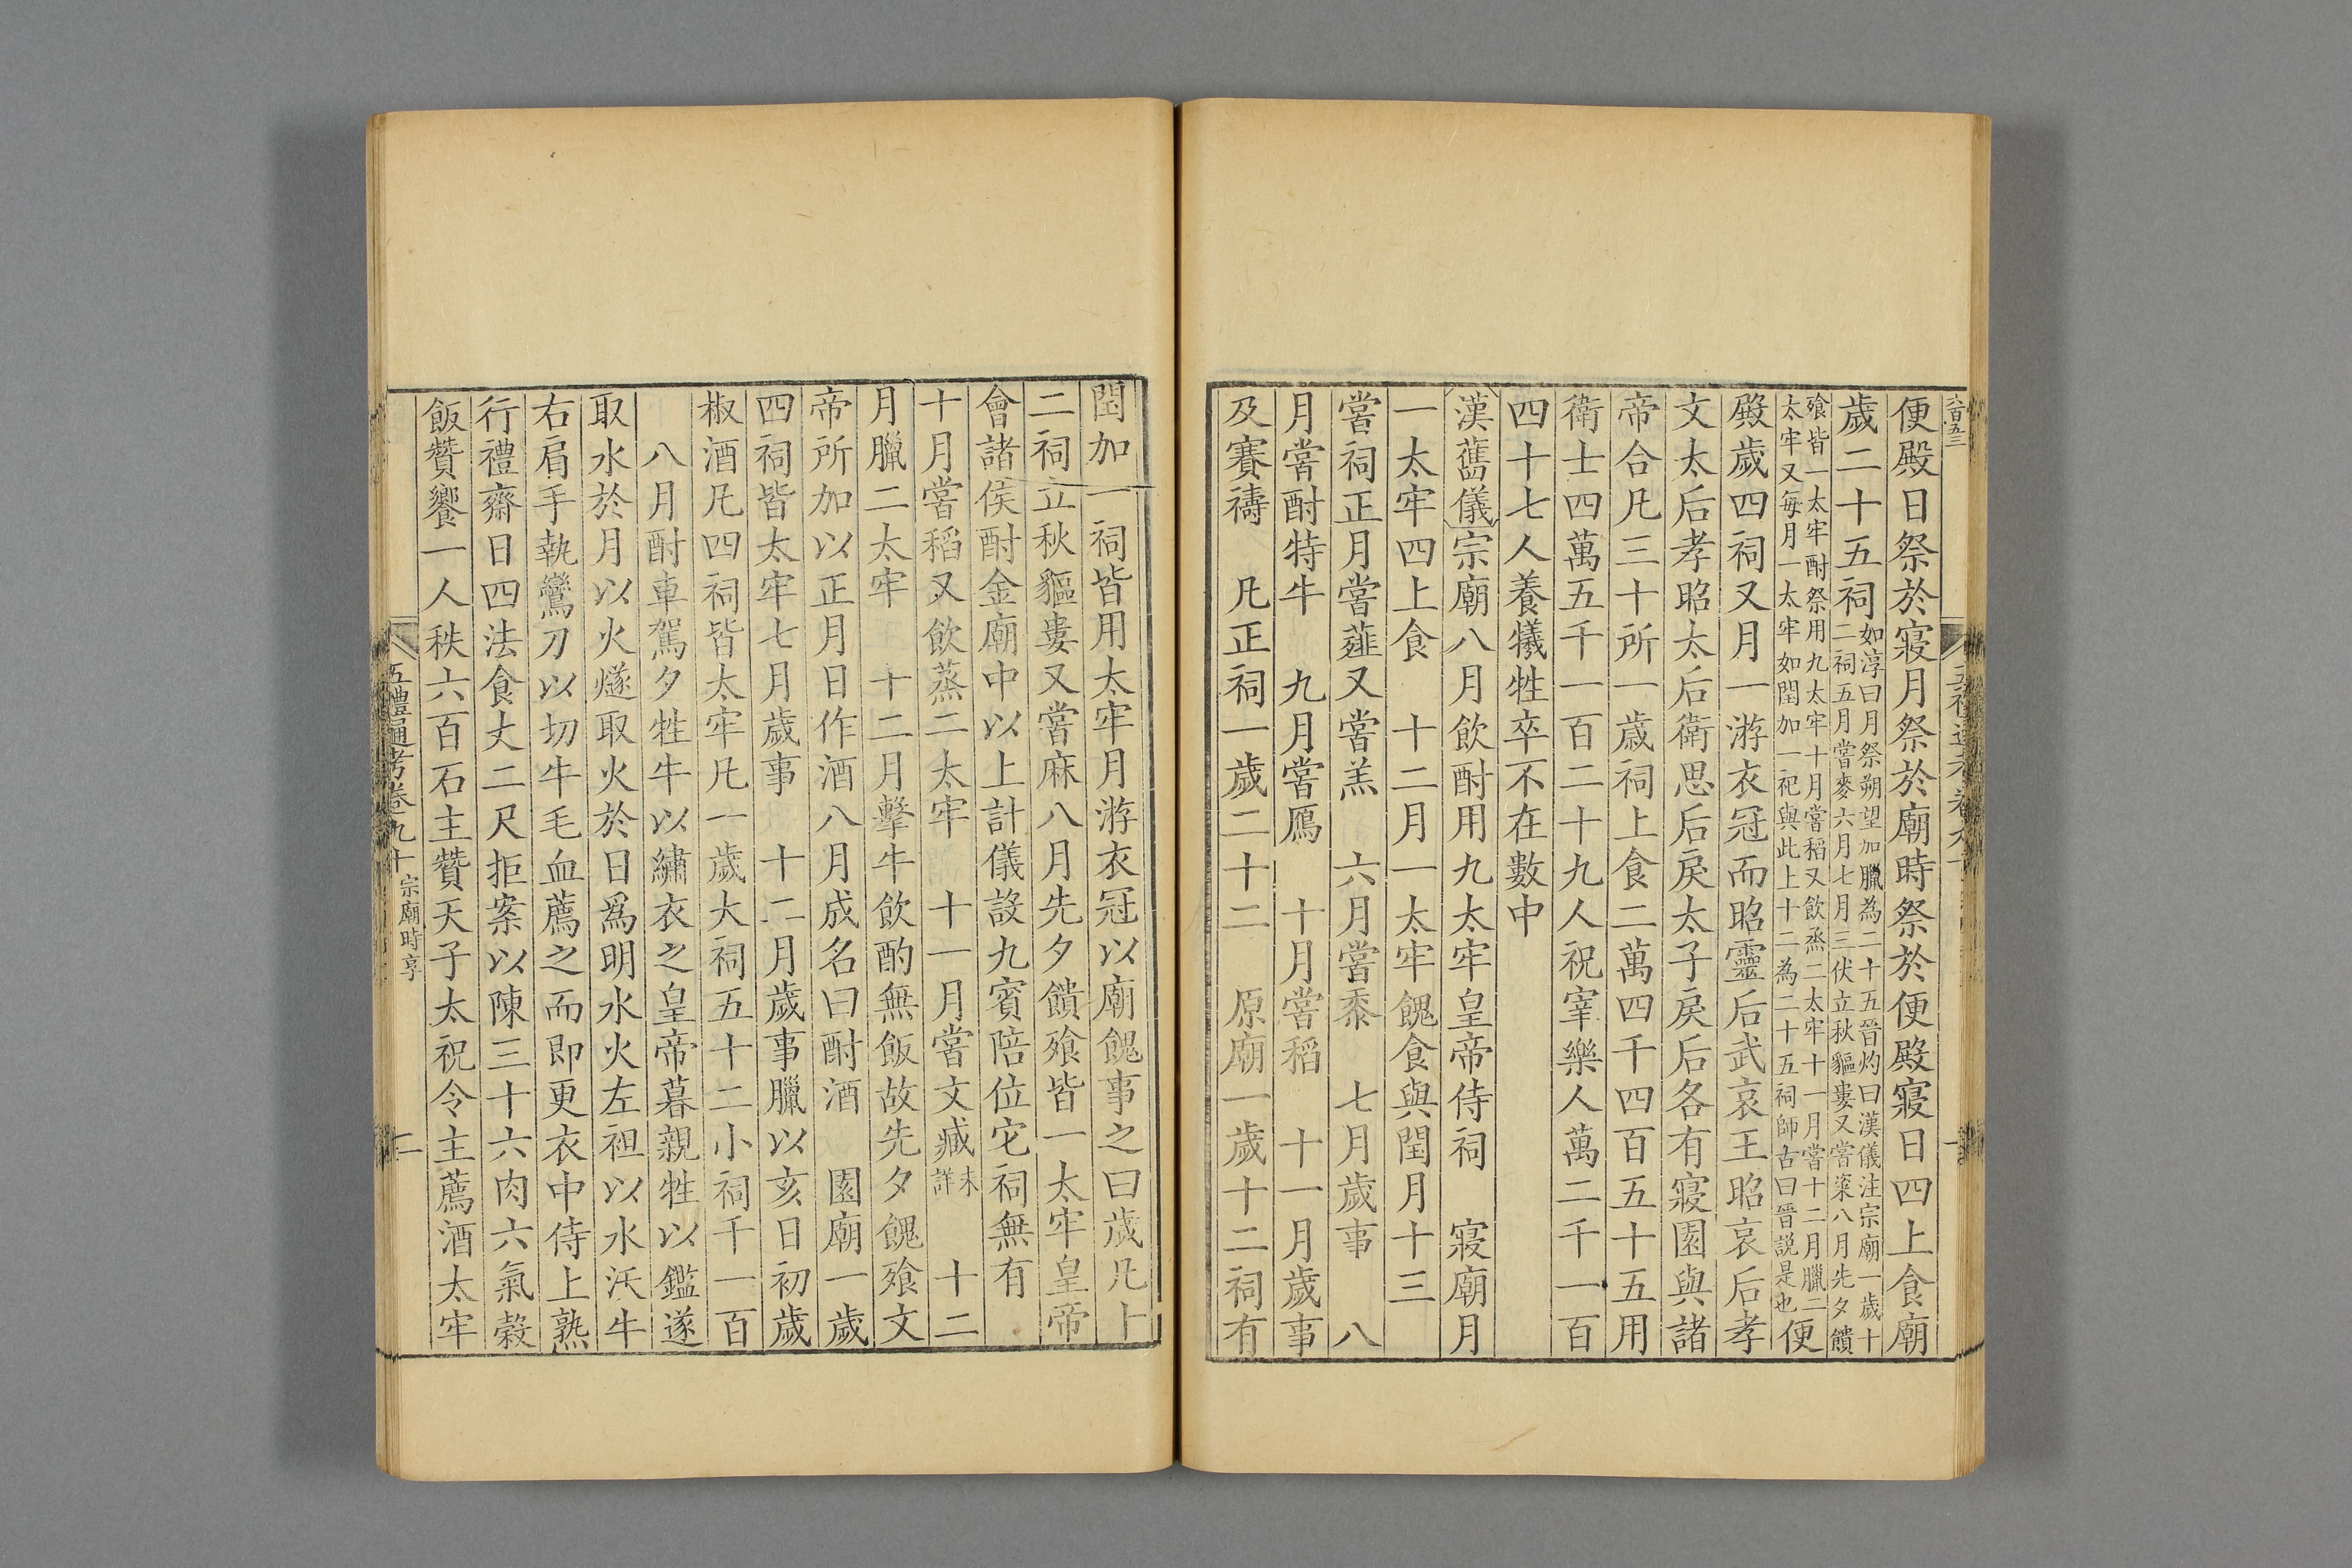 便殿日祭於寢月祭於廟時祭於便殿寢日四上食廟
歲二十五祠如淳曰月祭朔望加臘為二十五晉灼曰漢儀注宗廟一歲十
二祠五月嘗麥六月七月三伏立秋貙婁又嘗粢八月先夕饋
飱皆一太牢酎祭用九太牢十月嘗稻又飲烝二太牢十一月嘗十二月臘二
太牢又每月一太牢如閏加一祀與此上十二為二十五祠師古曰晉説是也便
殿歲四祠又月一游衣冠而昭靈后武哀王昭哀后孝
文太后孝昭太后衛思后戾太子戾后各有寢園與諸
帝合凡三十所一歲祠上食二萬四千四百五十五用
衛士四萬五千一百二十九人祝宰樂人萬二千一百
四十七人養犧牲卒不在數中
漢舊儀宗廟八月飲酎用九太牢皇帝侍祠 寢廟月
一太牢四上食 十二月一太牢餽食與閏月十三
嘗祠正月嘗韮又嘗羔 六月嘗黍 七月歲事 八
月嘗酎特牛 九月嘗鴈 十月嘗稻 十一月歲事
及賽禱 凡正祠一歲二十二 原廟一歲十二祠有
閏加一祠皆用太牢月游衣冠以廟餽事之曰歲凡十
二祠立秋貙婁又嘗麻八月先夕饋飱皆一太牢皇帝
會諸侯酎金廟中以上計儀設九賓陪位它祠無有
十月嘗稻又飲蒸二太牢 十一月嘗文臧未詳 十二
月臘二太牢 十二月擊牛飲酌無飯故先夕餽飱文
帝所加以正月日作酒八月成名曰酎酒 園廟一歲
四祠皆太牢七月歲事 十二月歲事臘以亥日初歲
椒酒凡四祠皆太牢凡一歲大祠五十二小祠千一百
八月酎車駕夕牲牛以繡衣之皇帝暮親牲以鑑遂
取水於月以火燧取火於日爲明水火左袒以水沃牛
右肩手執鸞刀以切牛毛血薦之而即更衣中侍上熟
行禮齋日四法食丈二尺拒案以陳三十六肉六氣穀
飯贊饗一人秩六百石主贊天子太祝令主薦酒太牢
五禮通考卷九十宗廟時享 二